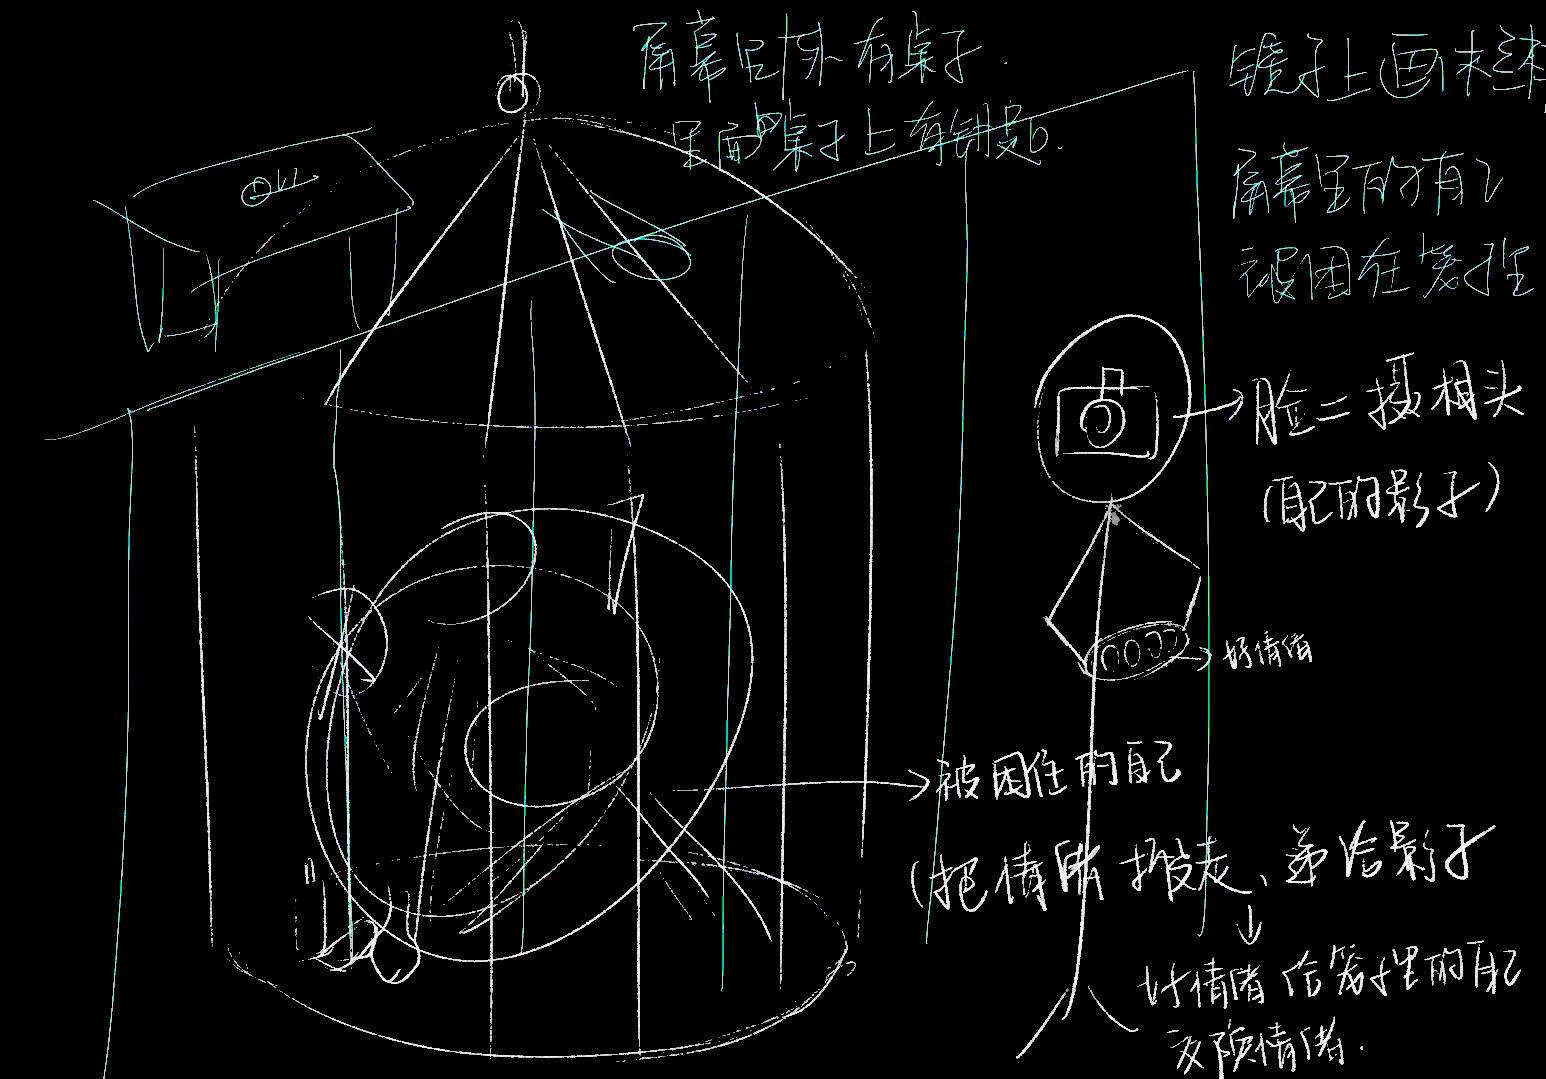 屏幕里外有桌子.
里面的桌子上有钥匙.
镜子上画未
屏幕里的有
被困在笼子里
脸=摄相头
(自己的影子)
好情绪
被困住的自己
(把情绪 拨走、并给影子
好情绪给笼子里的自己
交换情绪.